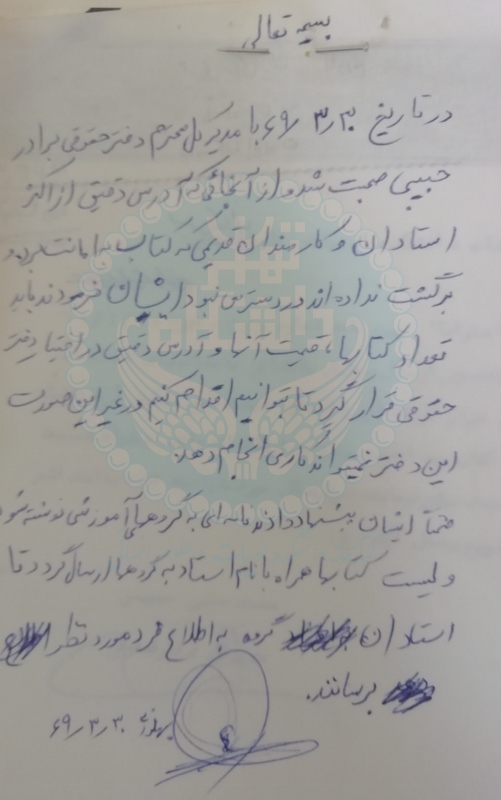 بسمه تعالی
در تاریخ ۶۹/۳/۳۰ با مدیر کل محترم دفتر حقوقی برادر
حبیبی صحبت شد و از آنجائی که آدرس دقیق از اکثر
استادان و کارمندان قدیمی که کتاب به امانت برده و
برگشت نداده اند در دسترس نبود ایشان فرمودند باید
تعداد کتابها، قیمت آنها و آدرس دقیق در اختیار دفتر
حقوقی قرار گیرد تا بتوانیم اقدام کنیم در غیر این صورت
این دفتر نمیتواند کاری انجام دهد.
ضمناً ایشان پیشنهاد دادند نامه ای به گروههای آموزشی نوشته شود
و لیست کتابها همراه با نام استاد به گروهها ارسال گردد تا
استادان گروه به اطلاع فرد مورد نظر
برسانند.
۶۹/۳/۳۰